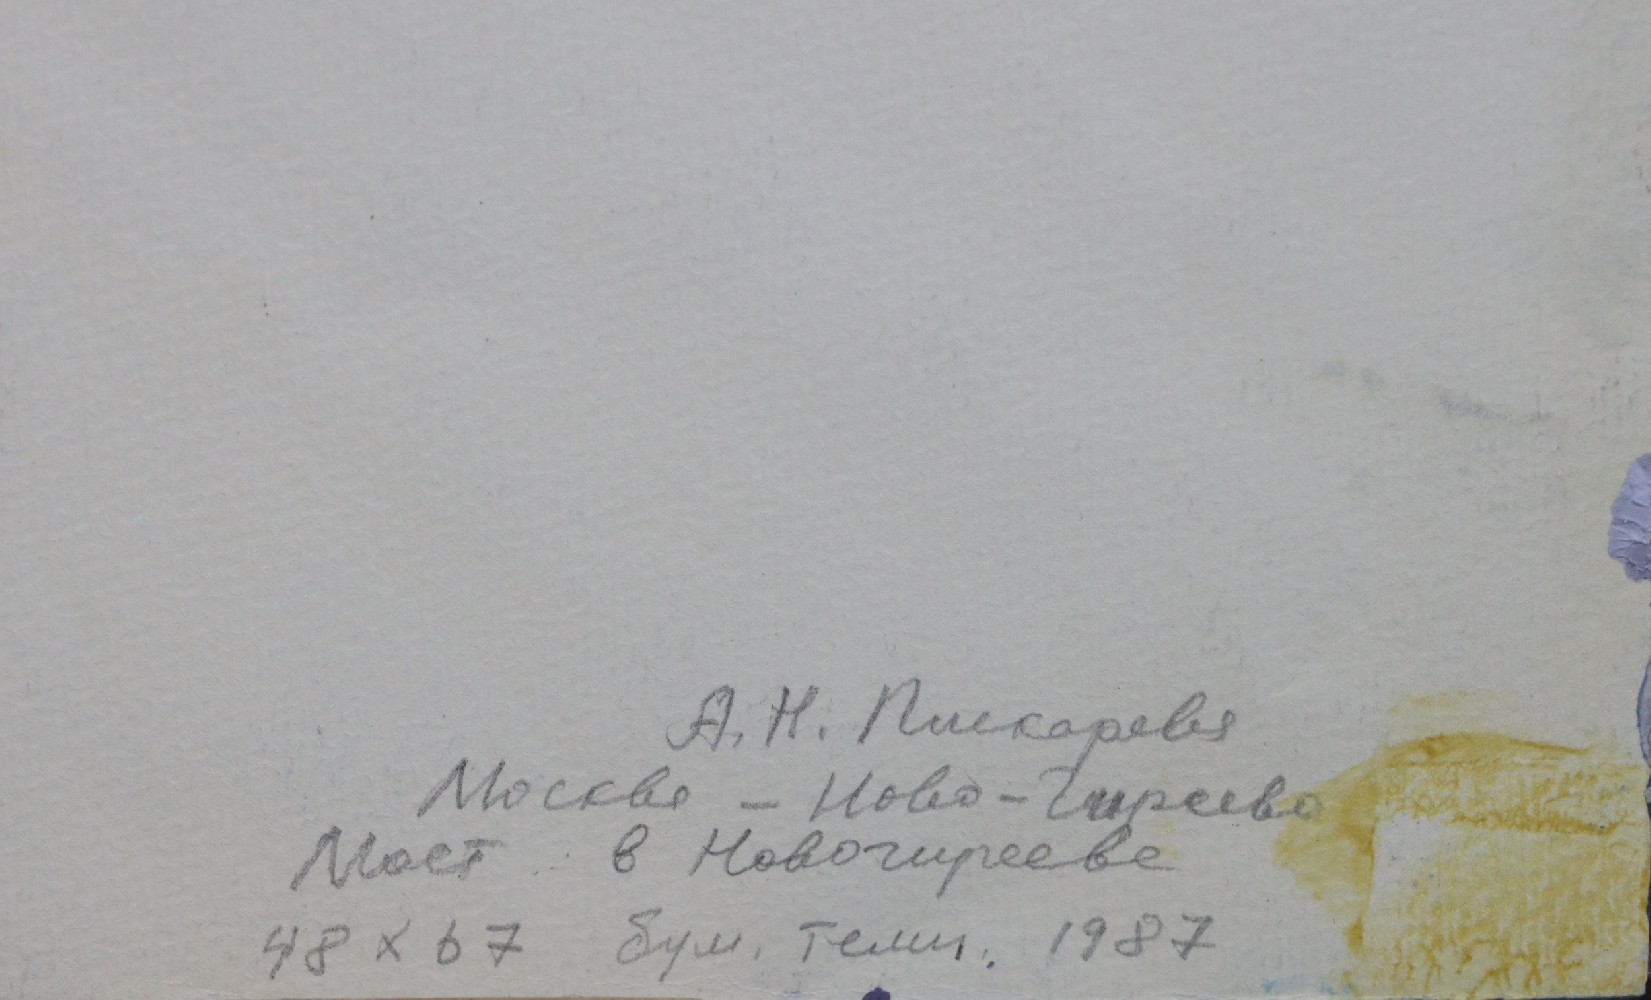 А. Н. Пискарева
Москва – Ново-Гиреево
Мост в Новогирееве
48 х 67 бум. темп. 1987